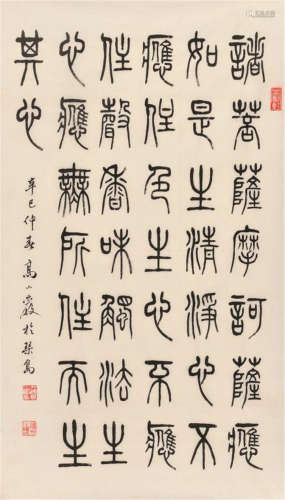 諸菩薩摩訶薩應
如是生清淨心不
應住色生心不應
住聲香味觸法生
心應無所住而生
其心
辛巳仲春高小巖於琴島